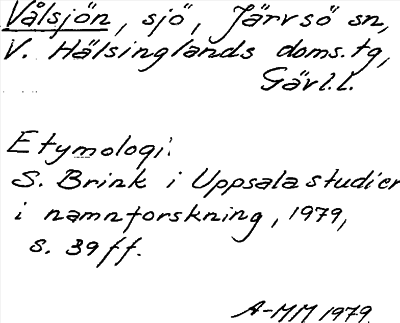 Vålsjön, sjö, Järvsö sn,
V. Hälsinglands doms.tg,
Gävl.l.
Etymologi:
S. Brink i Uppsalastudier
i namnforskning, 1979,
s. 39 ff.
A-MM 1979.